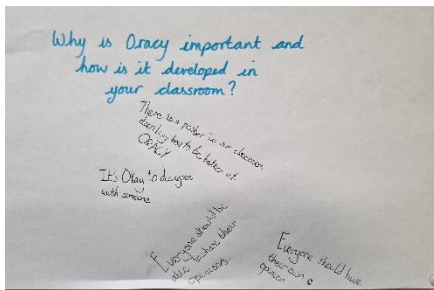 Why is Oracy important and
how is it developed in
your classroom?
There is a poster in our classroom
how to be better at
ORACY
It's Okay to disagree
with someone
Everyone should be
able to share their
opinions
Everyone should have
their own
opinion